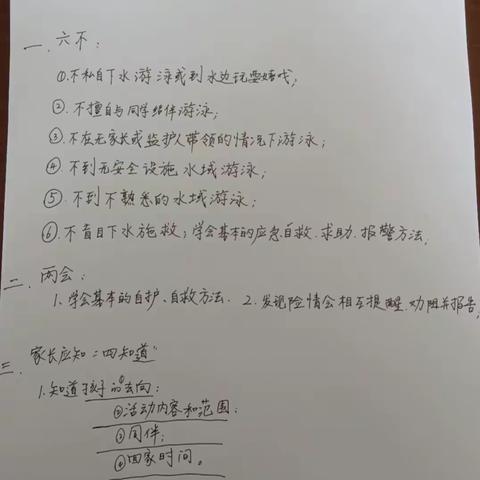 一、六不：
①不私自下水游泳或到水边玩耍嬉戏；
②不擅自与同学结伴游泳；
③不在无家长或监护人带领的情况下游泳；
④不到无安全设施水域游泳；
⑤不到不熟悉的水域游泳；
⑥不盲目下水施救；学会基本的应急自救、求助、报警方法。
二、两会：
1、学会基本的自护、自救方法. 2、发现险情会相互提醒、劝阻并报告。
三、家长应知“四知道”
1.知道孩子的①去向：
②活动内容和范围；
③同伴；
④回家时间。